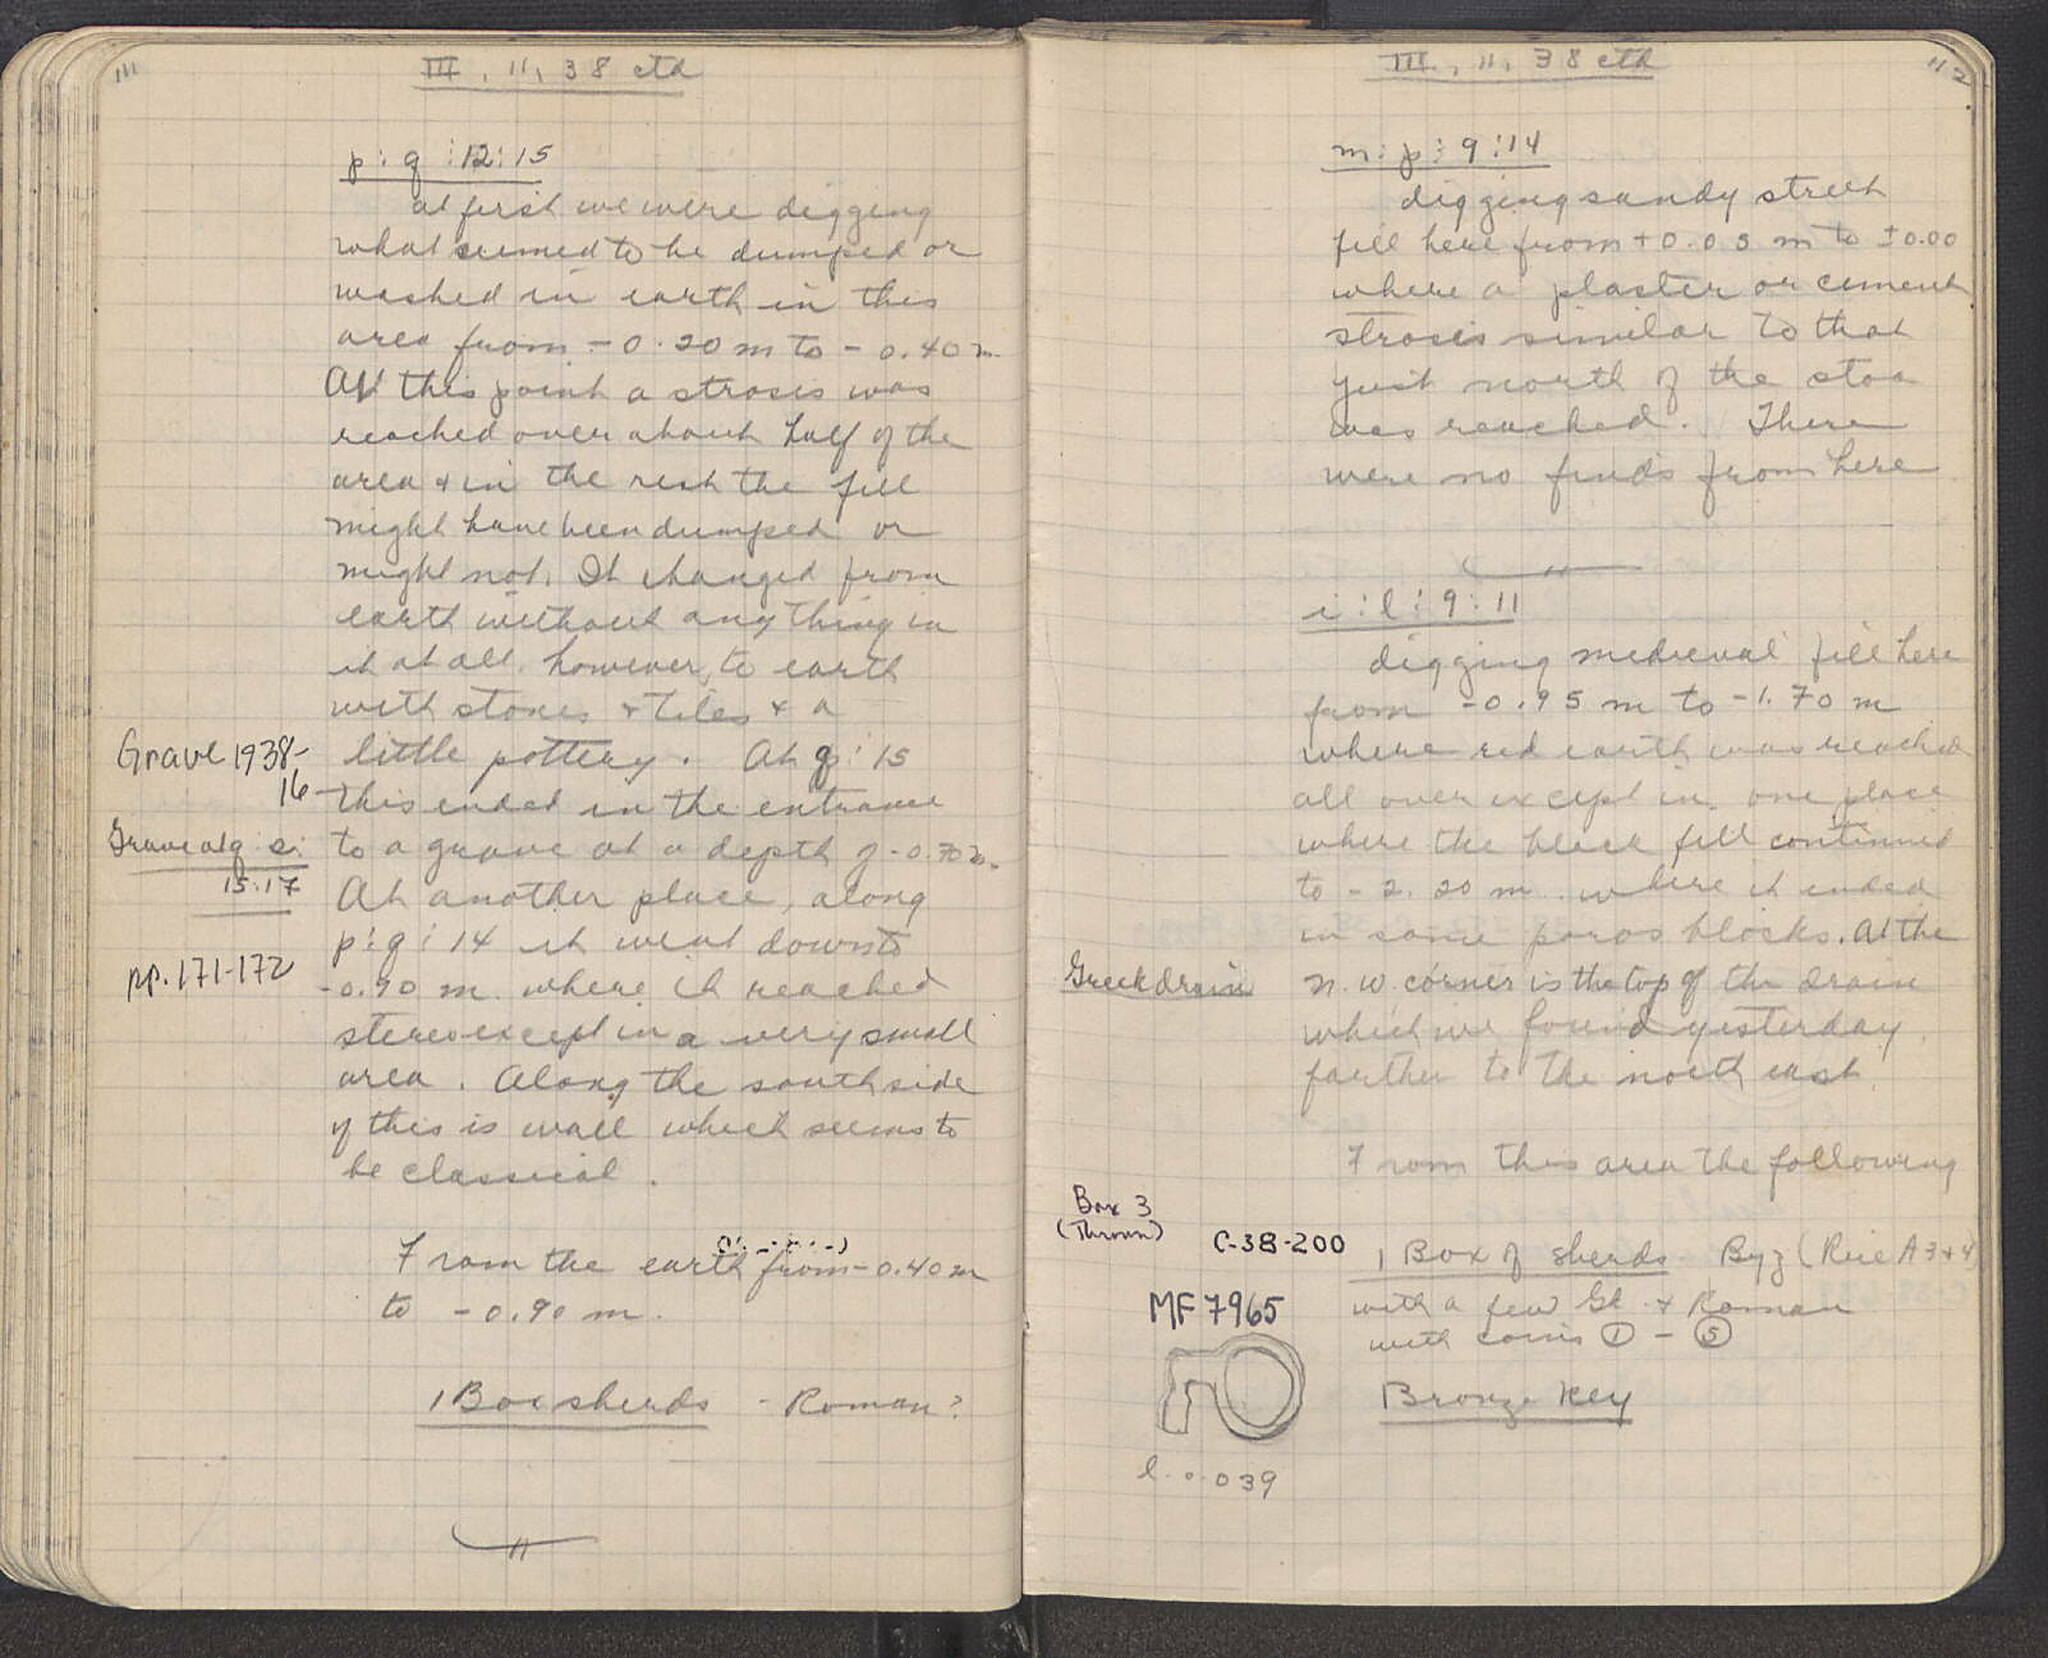 111
III, 11, 38 ctd
p : q : 12 : 15
at first we were digging
what seemed to be dumped or
washed in earth in this
area from - 0.20 m to - 0.40 m.
At this point a stroses was
reached over about half of the
area & in the rest the fill
might have been dumped or
might not. It changed from
earth without anything in
it at all, however, to earth
with stones & tiles & a
little pottery. At q : 15
this ended in the entrance
to a grave at a depth of - 0.70 m.
At another place, along
p : q : 14 it went down to
-0.90 m. where it reached
stereo except in a very small
area. Along the south side
of this is wall which seems to
be classical.
Grave 1938-
16
Grave at q : s :
15:17
pp. 171-172
From the earth from - 0.40 m
to - 0.90 m.
1 Box sherds - Roman?
112
III, 11, 38 ctd
m : p : 9 : 14
digging sandy street
fill here from + 0.05 m to ± 0.00
where a plaster or cement
stroses similar to that
just north of the stoa
was reached. There
were no finds from here
i : l : 9 : 11
digging medieval fill here
from -0.95 m to -1.70 m
where red earth was reached
all over except in one place
where the black fill continued
to - 2.20 m. where it ended
in some poros blocks. At the
N.W. corner is the top of the drain
which we found yesterday
farther to the north east.
Greek drain
From this area the following
Box 3
(Thrown)
C-38-200
1 Box of sherds Byz (Rice A 3 & 4)
with a few Gk. & Roman
with coins 1 - 5
MF 7965
Bronze Key
l. 0.039